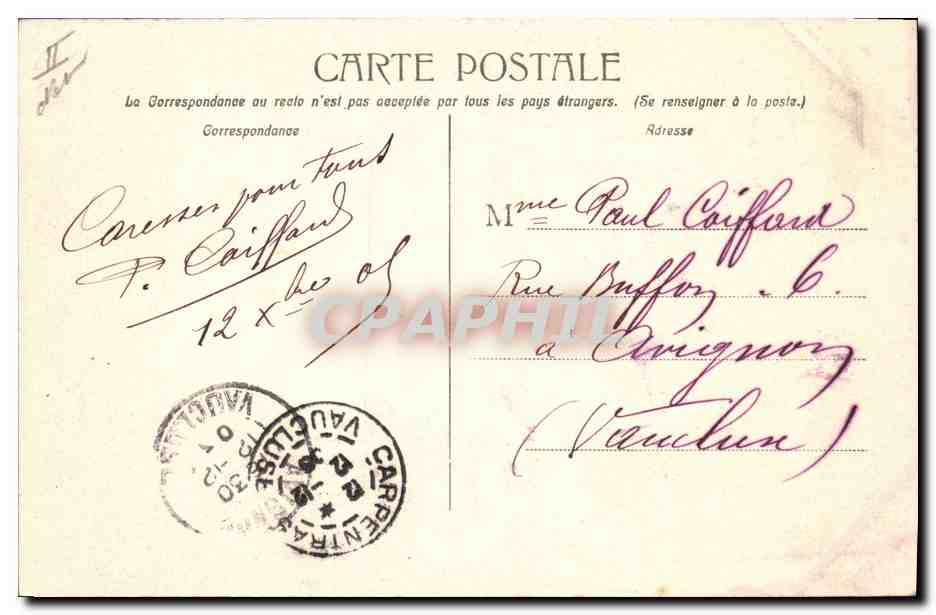 II
CARTE POSTALE
La Correspondance au recto n'est pas acceptée par tous les pays étrangers. (Se renseigner à la poste.)
Correspondance
Caresses pour tous
P. Coiffard
12 Xbre 05
Adresse
Mme Paul Coiffard
Rue Buffon, 6.
à Avignon
(Vaucluse)
CPAPHIL
VAUCLUSE
CARPENTRAS
VAUCLUSE